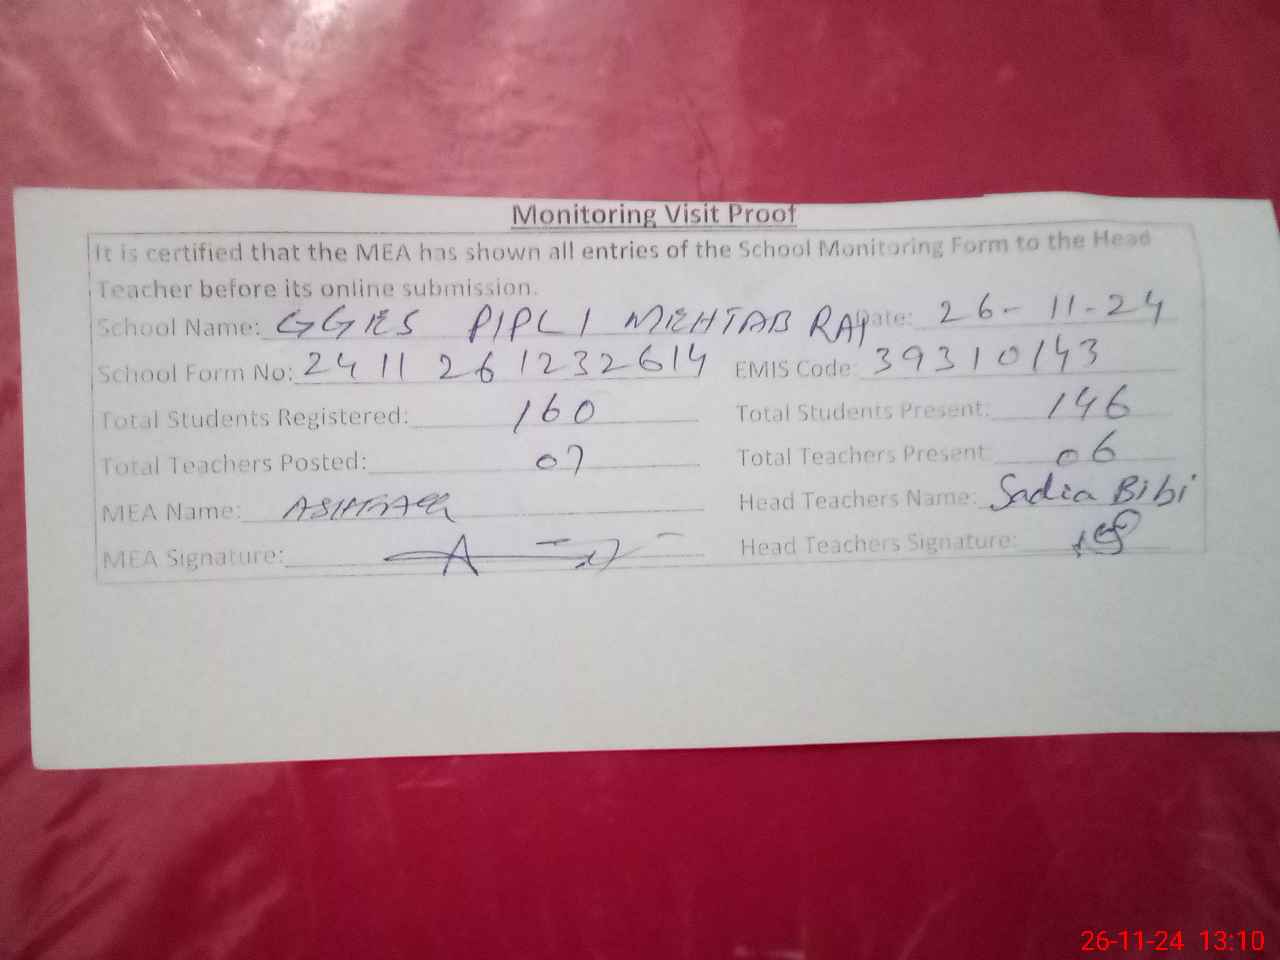 Monitoring Visit Proof
It is certified that the MEA has shown all entries of the School Monitoring Form to the Head
Teacher before its online submission.
School Name: GGES PIPLI MEHTAB RAI Date: 26-11-24
School Form No: 2411 261232614 EMIS Code: 39310143
Total Students Registered: 160 Total Students Present: 146
Total Teachers Posted: 07 Total Teachers Present: 06
MEA Name: Head Teachers Name: Sadia Bibi
MEA Signature: Head Teachers Signature:
26-11-24 13:10